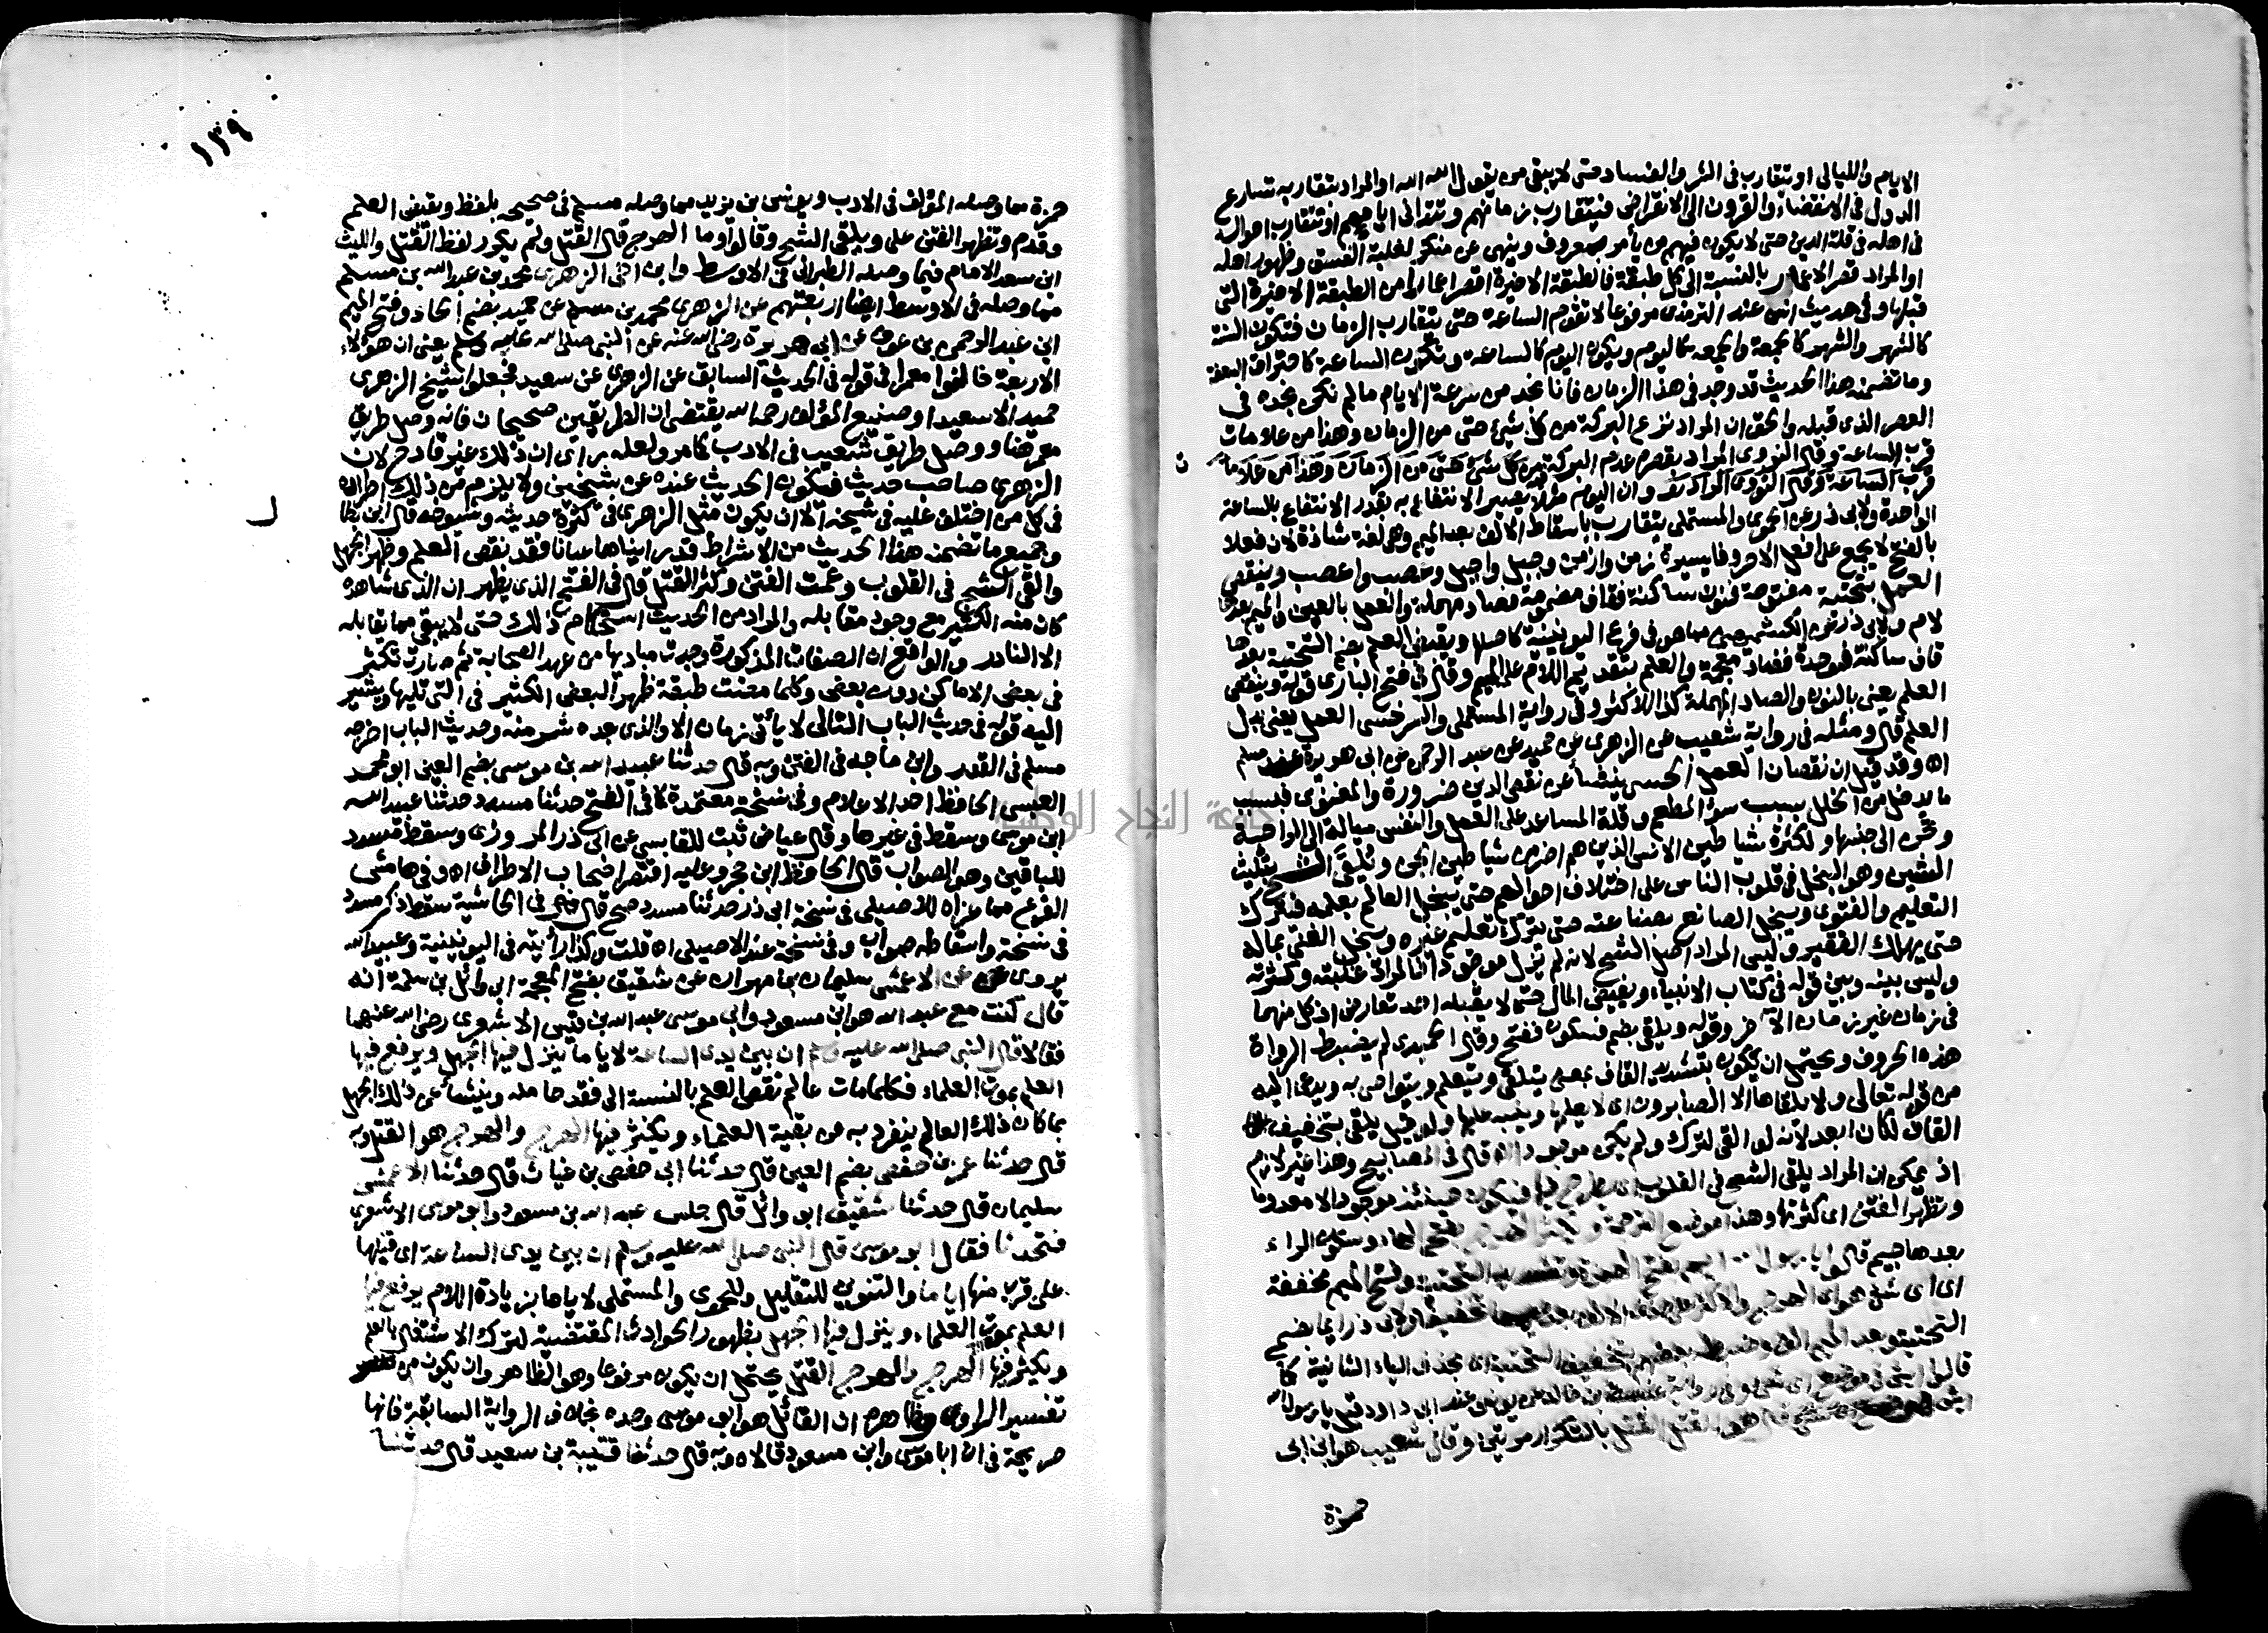 الايام والليالي او تتقارب في الشر والفساد حتى لا يبقى من يقول الله الله او المراد بتقاربه تسارع
الدول في الانقضاء والقرون الى الانقراض فيتقارب زمانهم وتتدانى ايامهم او تتقارب احواله
في اهله في قلة الدين حتى لا يكون فيهم من يأمر بمعروف وينهى عن منكر لغلبة الفسق وظهور اهله
او المراد قصر الاعمار بالنسبة الى كل طبقة فالطبقة الاخيرة اقصر اعمارا من الطبقة الاخيرة التي
قبلها وفي حديث انس عند الترمذي مرفوعا لا تقوم الساعة حتى يتقارب الزمان فتكون السنة
كالشهر والشهر كالجمعة والجمعة كاليوم ويكون اليوم كالساعة وتكون الساعة كاحتراق السعفة
وما تضمنه هذا الحديث قد وجد في هذا الزمان فانا نجد من سرعة الايام ما لم نكن نجده في
العصر الذي قبله والحق ان المراد نزع البركة من كل شيء حتى من الزمان وهذا من علامات
قرب الساعة وقال النووي المراد بقصره عدم البركة من كل شيء حتى من الزمان وهذا من علامات
قرب الساعة وقال النووي المراد وان اليوم مثلا يصير الانتفاع به بقدر الانتفاع بالساعة
الواحدة ولابي ذر عن الحموي والمستملي يتقارب باسقاط الالف بعد الميم وهي لغة شاذة لان فعلا
بالفتح لا يجمع على افعل الا حروفا يسيرة زمن وازمن وجبل واجبل وعصب واعصب وينقص
العمل بتحتية مفتوحة فنون ساكنة فقاف مضمومة فصاد مهملة والعمل بالعين والميم بعدها
لام ولابي ذر عن الكشميهني مما هو في فرع اليونينية كاصلها ويقبض العلم بضم التحتية بعدها
قاف ساكنة فموحدة فضاد معجمة والعلم بتقديم اللام على الميم وقال في فتح الباري قوله وينقص
العلم يعني بالنون والصاد المهملة كذا للاكثر وفي رواية المستملي والسرخسي العمل يعني بدل
العلم قال ومثله في رواية شعيب عن الزهري عن حميد عن عبد الرحمن عن ابي هريرة عند مسلم
اه وقد قيل ان نقصان العمل الحسي ينشأ عن نقص الدين ضرورة والمعنوي فبسبب
ما يدخل من الخلل بسبب سوء المطعم وقلة المساعد على العمل والنفس ميالة الى الراحة
وتحن الى جنسها ولكثرة شياطين الانس الذين هم اضر من شياطين الجن ويُلقى الشح بتثليث
الشين وهو البخل في قلوب الناس على اختلاف احوالهم حتى يبخل العالم بعلمه فيترك
التعليم والفتوى ويبخل الصانع بصناعته حتى يترك تعليم غيره ويبخل الغني بماله
حتى يهلك الفقير وليس المراد اصل الشح لانه لم يزل موجودا فالمراد غلبته وكثرته
وليس بينه وبين قوله في كتاب الانبياء ويفيض المال حتى لا يقبله احد تعارض اذ كل منهما
في زمان غير زمان الآخر وقوله ويلقى بضم فسكون ففتح وقال الحميدي لم يضبط الرواة
هذه الحروف ويحتمل ان يكون بتشديد القاف بمعنى يتلقى ويتعلم ويتواصى به ويدعى اليه
من قوله تعالى ولا يلقاها الا الصابرون اي لا يعلمها وينبه عليها ولو قيل يلقى بتخفيف
القاف لكان ابعد لانه لو القي لترك ولم يكن موجودا اه قال في المصابيح وهذا غير لازم
اذ يمكن ان المراد يلقى الشح في القلوب اي يطرح فيها فيكون حينئذ موجودا لا معدوما
وتظهر الفتن اي كثرتها وهذا موضع الترجمة ويكثر الهرج بفتح الهاء وسكون الراء
بعدها جيم قالوا يا رسول الله ايم بفتح الهمزة وتشديد التحتية وفتح الميم مخففة
اي اي شيء هو اي الهرج والاكثر على حذف الالف بعد ميمها تخفيفا ولابي ذر ايما بضم
التحتية وبعد الميم الف وضبطه بعضهم بتخفيف التحتية اي بحذف الياء الثانية كما
قالوا ايش في موضع اي شيء وفي رواية عنبسة بن خالد عن يونس عند ابي داود قيل يا رسول الله
ايش هو قال هو القتل القتل بالتكرار مرتين وقال شعيب هو ابن ابي
حمزة
١٣٩
حمزة مما وصله المؤلف في الادب ويونس بن يزيد مما وصله مسلم في صحيحه بلفظ ويقبض العلم
وقدم وتظهر الفتن على ويلقى الشح وقالوا وما الهرج قال القتل ولم يكرر لفظ القتل والليث
ابن سعد الامام فيما وصله الطبراني في الاوسط وابن اخي الزهري محمد بن عبد الله بن مسلم
مما وصله في الاوسط ايضا اربعتهم عن الزهري محمد بن مسلم عن حميد بضم الحاء وفتح الميم
ابن عبد الرحمن بن عوف عن ابي هريرة رضي الله عنه عن النبي صلى الله عليه وسلم يعني ان هؤلاء
الاربعة خالفوا معمرا في قوله في الحديث السابق عن الزهري عن سعيد فجعلوا شيخ الزهري
حميدا لا سعيدا وصنيع المؤلف رحمه الله يقتضي ان الطريقين صحيحان فانه وصل طريق
معمر هنا ووصل طريق شعيب في الادب كما مر ولعله رأى ان ذلك غير قادح لان
الزهري صاحب حديث فيكون الحديث عنده عن شيخين ولا يلزم من ذلك اطراده
في كل من اختلف عليه في شيخه الا ان يكون مثل الزهري في كثرة حديثه وشيوخه قال ابن بطال
وجميع ما تضمنه هذا الحديث من الاشراط قد رايناها عيانا فقد نقص العلم وظهر الجهل
والقي الشح في القلوب وعمت الفتن وكثر القتل قال في الفتح الذي يظهر ان الذي شاهده
كان منه الكثير مع وجود مقابله والمراد من الحديث استحكام ذلك حتى لا يبقى مما يقابله
الا النادر والواقع ان الصفات المذكورة وجدت مباديها من عهد الصحابة ثم صارت تكثر
في بعض الاماكن دون بعض وكلما مضت طبقة ظهر البعض الكثير في التي تليها ويشير
اليه قوله في حديث الباب التالي لا يأتي زمان الا والذي بعده شر منه وحديث الباب اخرجه
مسلم في القدر وابن ماجه في الفتن وبه قال حدثنا عبيد الله بن موسى بضم العين ابو محمد
العبسي الحافظ احد الاعلام وفي نسخة معتمدة كما في الفتح حدثنا مسدد حدثنا عبيد الله
ابن موسى وسقط في غيرها وقال عياض ثبت للقابسي عن ابي ذر المروزي وسقط مسدد
للباقين وهو الصواب قال الحافظ ابن حجر وعليه اقتصر اصحاب الاطراف اه وفي هامش
الفرع مما عزاه للاصيلي في نسخة ابي ذر حدثنا مسدد صح قال في الحاشية سقط ذكر مسدد
في نسخة واسقاطه صواب وفي نسخة عند الاصيلي اه قلت وكذا رأيته في اليونينية وعبيد الله
يروي عن الاعمش سليمان بن مهران عن شقيق بفتح المعجمة ابي وائل بن سلمة انه
قال كنت مع عبد الله هو ابن مسعود وابي موسى عبد الله بن قيس الاشعري رضي الله عنهما
فقالا قال النبي صلى الله عليه وسلم ان بين يدي الساعة لاياما ينزل فيها الجهل ويرفع فيها
العلم بموت العلماء فكلما مات عالم نقص العلم بالنسبة الى فقد حامله وينشأ عن ذلك الجهل
بما كان ذلك العالم ينفرد به عن بقية العلماء ويكثر فيها الهرج والهرج هو القتل وبه
قال حدثنا عمر بن حفص بضم العين قال حدثنا ابي حفص بن غياث قال حدثنا الاعمش
سليمان قال حدثنا شقيق ابو وائل قال جلس عبد الله بن مسعود وابو موسى الاشعري
فتحدثا فقال ابو موسى قال النبي صلى الله عليه وسلم ان بين يدي الساعة اي قبلها
على قرب منها اياما والتنوين للتقليل وللحموي والمستملي لاياما بزيادة اللام يرفع فيها
العلم بموت العلماء وينزل فيها الجهل بظهور الحوادث المقتضية لترك الاشتغال بالعلم
ويكثر فيها الهرج والهرج القتل يحتمل ان يكون مرفوعا وهو الظاهر وان يكون من
تفسير الراوي وظاهره ان القائل هو ابو موسى وحده بخلاف الرواية السابقة فانها
صريحة في ان ابا موسى وابن مسعود قالاه وبه قال حدثنا قتيبة بن سعيد قال حدثنا
جامعة النجاح الوطنية